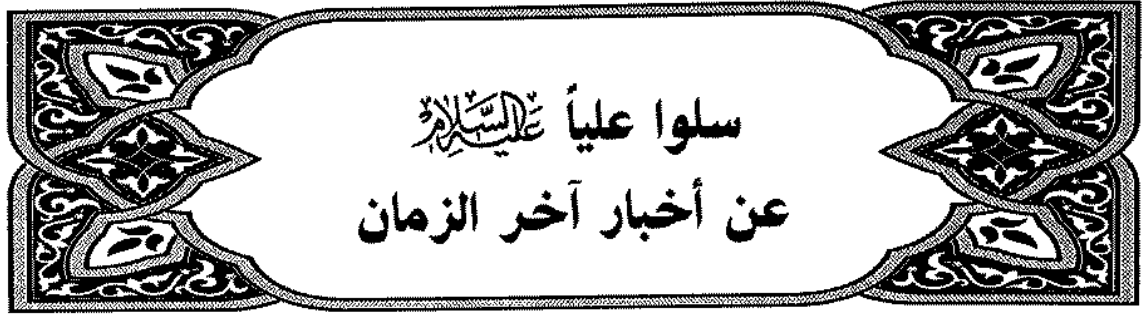 سلوا علياً عليه السلام
عن أخبار آخر الزمان